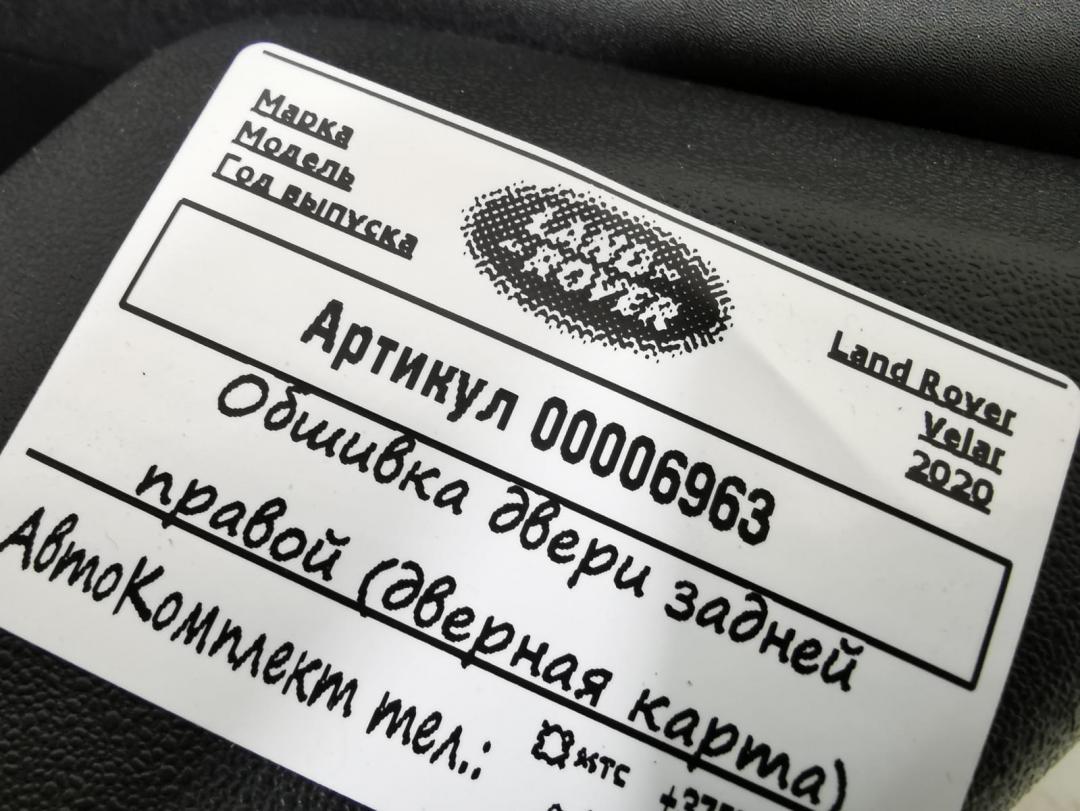 Марка
Модель
Год выпуска
LAND-
-ROVER
Land Rover
Velar
2020
Артикул 00006963
Обшивка двери задней
правой (дверная карта)
АвтоКомплект тел.: мтс